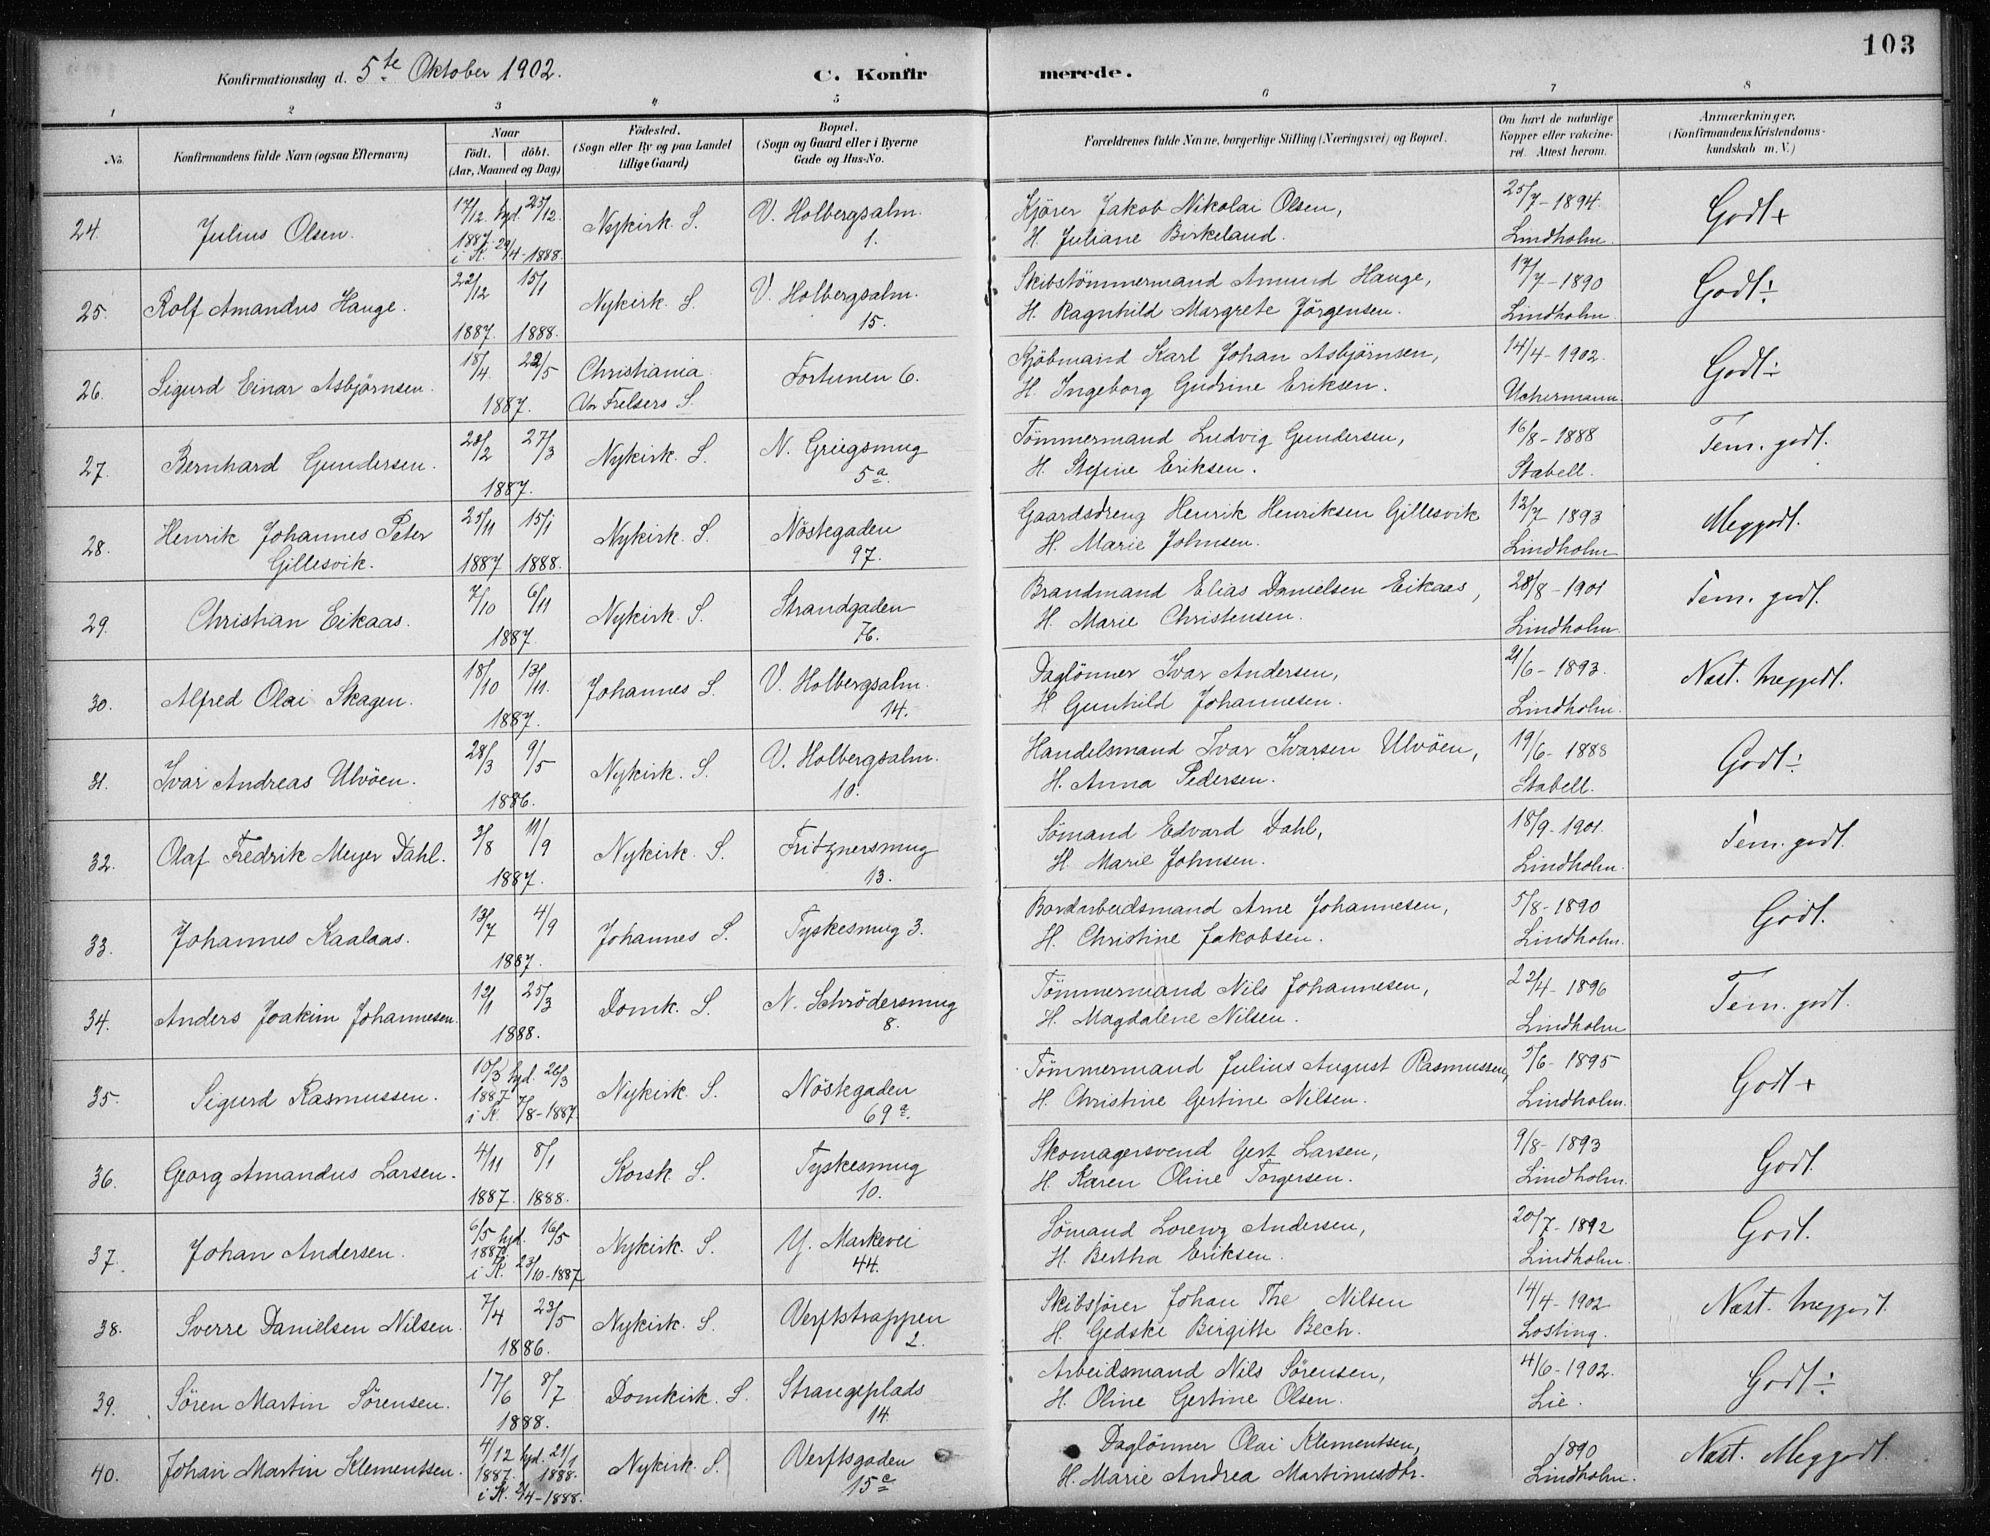 103
Konfirmationsdag d. 5te Oktober 1902. C. Konfir merede.
1 2 3 4 5 6 7 8
No. Konfirmandens fulde Navn (ogsaa Efternavn) Naar Födt. döbt. (Aar, Maaned og Dag) Födested. (Sogn eller By og paa Landet tillige Gaard) Bopæl. (Sogn og Gaard eller i Byerne Gade og Hus-No. Forældrenes fulde Navne, borgerlige Stilling (Næringsvei) og Bopæl. Om havt de naturlige Kopper eller vakcineret. Attest herom. Anmærkninger. (Konfirmandens Kristendomskundskab m. V.)
24. Julius Olsen. 17/12 hjd. 25/12. 1887. i K. 29/4-1888. Nykirk. S. V. Holbergsalm. 1. Kjörer Jakob Nikolai Olsen, H. Juliane Birkeland. 25/7-1894. Lindholm. Godt +
25. Rolf Amandus Hauge. 22/12 1887. 15/1 1888. Nykirk. S. V. Holbergsalm. 15. Skibstømmermand Amund Hauge, H. Ragnhild Margrete Jörgensen. 17/7-1890 Lindholm. Godt÷
26. Sigurd Einar Asbjörnsen. 18/4. 22/5 1887. Christiania Vor Frelsers S. Fortunen 6. Kjöbmand Karl Johan Asbjörnsen, H. Ingeborg Gudrine Eriksen. 14/4-1902. Uchermann. Godt÷
27. Bernhard Gundersen. 28/2 27/3 1887. Nykirk. S. N. Griegsmug 5a. Tömmermand Ludvig Gundersen, H. Stefine Eriksen. 16/8-1888 Stabell. Tem. godt.
28. Henrik Johannes Peter Gillesvik. 25/11 1887 15/1 1888. Nykirk. S. Nöstegaden 97. Gaardsdreng Henrik Henriksen Gillesvik H. Marie Johnsen. 12/7 1893 Lindholm Meggodt.
29. Christian Eikaas. 7/10 6/11 1887. Nykirk. S. Strandgaden 76. Brandmand Elias Danielsen Eikaas, H. Marie Christensen. 28/8-1901 Lindholm. Tem. godt.
30. Alfred Olai Skagen. 18/10 13/11. 1887. Johannes S. V. Holbergsalm. 14. Daglönner Ivar Andersen, H Gunhild Johannesen. 21/6-1893. Lindholm. Næst. meggodt.
31. Ivar Andreas Ulvöen. 28/3 9/5 1886. Nykirk. S. V. Holbergsalm. 10. Handelsmand Ivar Ivarsen Ulvöen, H. Anna Pedersen. 19/6-1888 Stabell. Godt÷
32. Olaf Fredrik Meyer Dahl. 3/8 11/9 1887. Nykirk. S. Fritznersmug 13. Sömand Edvard Dahl, H. Marie Johnsen. 18/9-1901. Lindholm. Tem. godt.
33. Johannes Kaalaas. 13/7 4/9 1887. Johannes S. Tyskesmug 3. Bordarbeidsmand Arne Johannesen, H. Christine Jakobsen. 5/8-1890 Lindholm. Godt.
34. Anders Joakim Johannesen. 12/1 25/3 1888. Domk. S. N. Schrödersmug 8. Tömmermand Nils Johannesen, H. Magdalene Nilsen. 22/4-1896 Lindholm Tem. godt.
35. Sigurd Rasmussen. 10/3 hjd. 26/3 1887 i K. 7/8-1887. Nykirk. S. Nöstegaden 69a. Tömmermand Julius August Rasmussen, H. Christine Gertine Nilsen. 5/6-1895 Lindholm. Godt +
36. Georg Amandus Larsen. 4/11 1887. 8/1 1888. Korsk. S. Tyskesmug 10. Skomagersvend Gert Larsen, H. Karen Oline Torgersen. 9/8-1893 Lindholm. Godt.
37. Johan Andersen. 6/5 hjd. 16/5 1887. i K. 23/10-1887 Nykirk. S. Y. Markevei 44. Sömand Lorenz Andersen, H. Bertha Eriksen. 20/7-1892 Lindholm. Godt.
38. Sverre Danielsen Nilsen. 7/4 23/5 1886. Nykirk. S. Verftstrappen 2. Skibsförer Johan The Nilsen H. Gedske Birgitte Bech. 14/4-1902 Losting. Næst. meggodt.
39. Sören Martin Sörensen. 17/6 8/7 1888. Domkirk. S. Strangeplads 14. Arbeidsmand Nils Sörensen, H. Oline Gertine Olsen. 4/6-1902. Lie. Godt÷
40. Johan Martin Klementsen. 4/12 hjd. 21/1 1887. 1888. i K. 2/4-1888. Nykirk. S. Verftsgaden 15c Daglönner Olai Klementsen, H. Marie Andrea Martinusdtr. 1890 Lindholm. Næst. Meggodt.